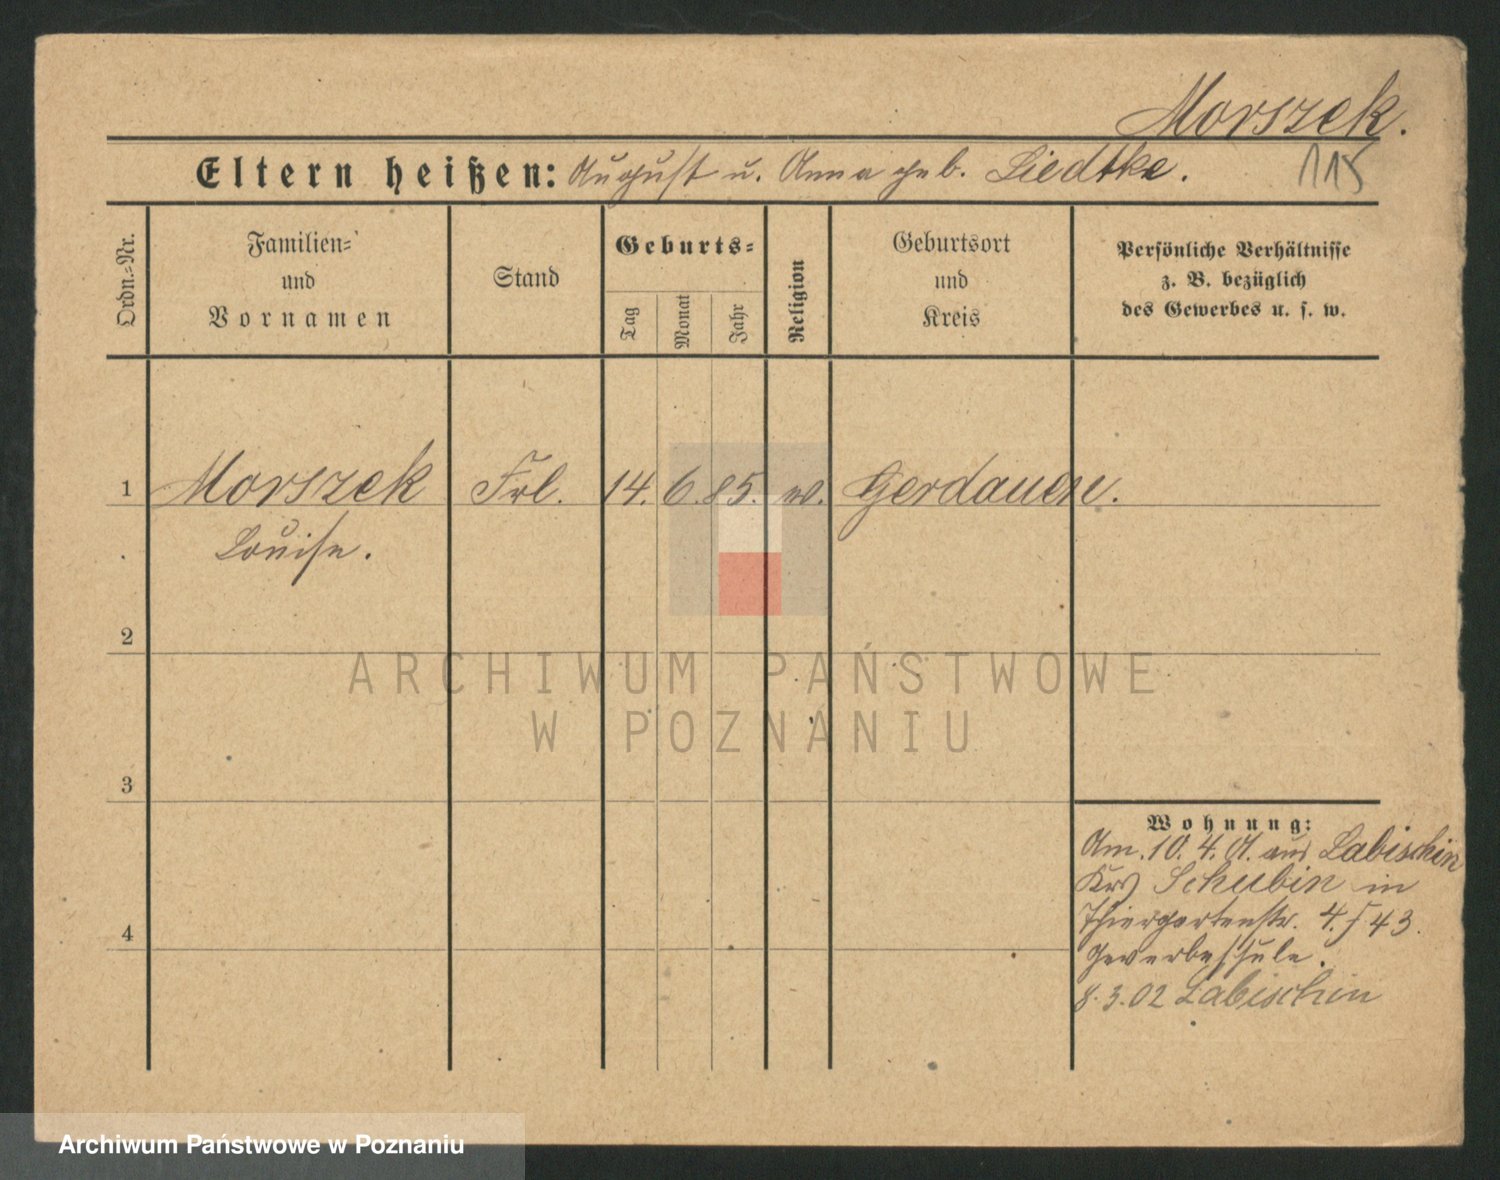 Morszek.
Eltern heißen: August u. Anna geb. Liedtke. 115
Ordn.-Nr.
Familien-
und
Vornamen
Stand
Geburts-
Tag
Monat
Jahr
Religion
Geburtsort
und
Kreis
Persönliche Verhältnisse
z. B. bezüglich
des Gewerbes u. s. w.
1 Morszek Frl. 14. 6. 85. Gerdauen.
Louise.
2
ARCHIWUM PAŃSTWOWE
W POZNANIU
3
Wohnung:
Am. 10. 4. 01. aus Labischin
Krs Schubin in
Thiergartenstr. 4. 43.
4
Gewerbeschule.
8. 3. 02 Labischin
Archiwum Państwowe w Poznaniu